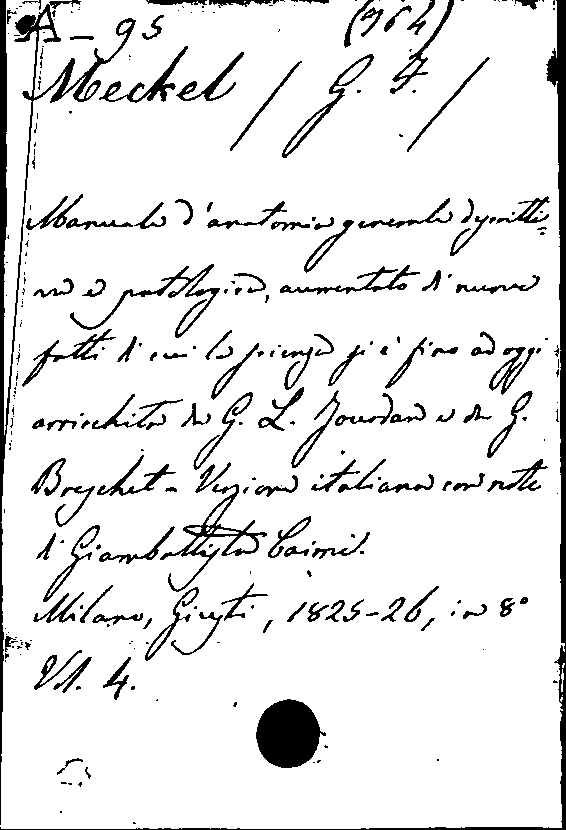 A-95 (964)
Meckel / G. F. /
Manuale d'anatomia generale descritti=
va e patologica, aumentato di nuovi
fatti di cui la scienza si è fino ad oggi
arricchita da G. L. Jourdan e da G.
Breschet - Versione italiana con note
di Giambattista Caimi.
Milano, Giusti, 1825-26, in 8°
Vol. 4.